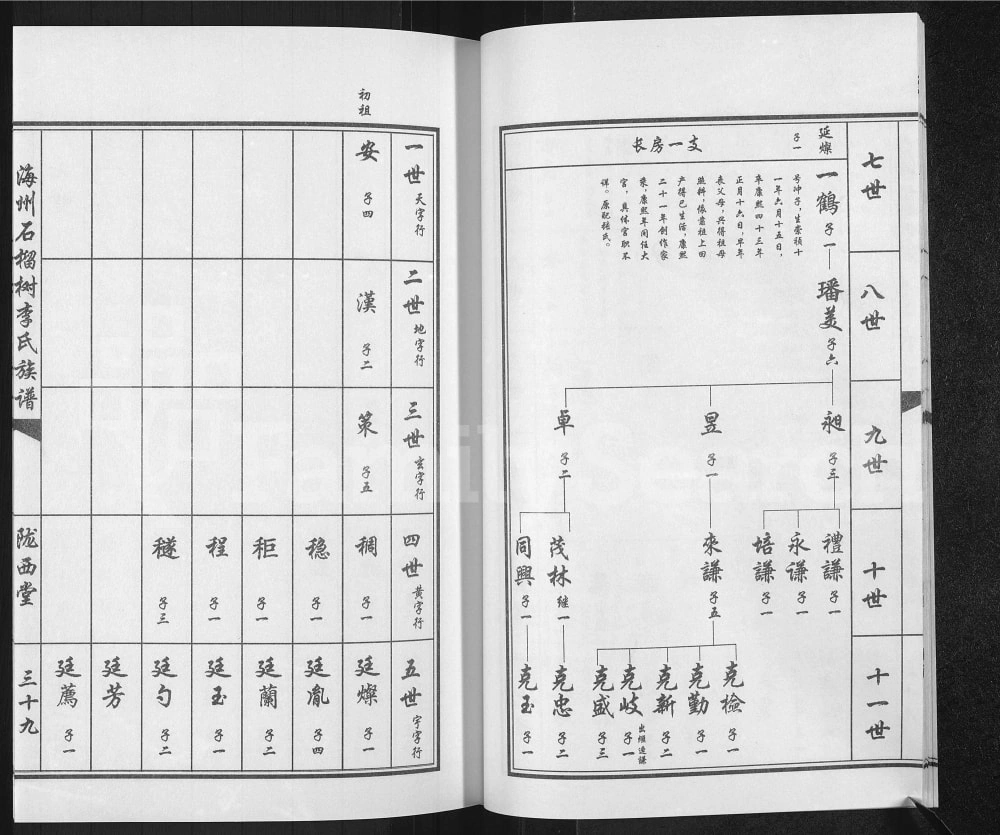 七世
八世
九世
十世
十一世
长房一支
延燦
子一
一鶴 子一
号冲子,生崇禎十
一年六月十五日,
卒康熙四十三年
正月十六日,早年
丧父母,兴得祖母
照料,依靠祖上田
产得已生活,康熙
二十一年创作家
乘,康熙年间任大
官,具体官职不
详。原配张氏。
璠美 子六
昶 子三
昱 子一
卓 子二
禮謙 子一
永谦 子一
培謙 子一
來謙 子五
茂林 继一
同興 子一
克檢 子一
克勤 子一
克新 子二
克岐 子一 出继連謙
克盛 子三
克忠 子二
克玉 子一
初祖
一世 天字行
安 子四
二世 地字行
漢 子二
三世 玄字行
策 子五
四世 黄字行
稠 子一
稳 子一
秬 子一
程 子一
穟 子三
五世 宇字行
廷燦 子一
廷胤 子四
廷蘭 子二
廷玉 子一
廷勺 子二
廷芳
廷薦 子一
海州石榴树李氏族谱
陇西堂
三十九
FamilySearch